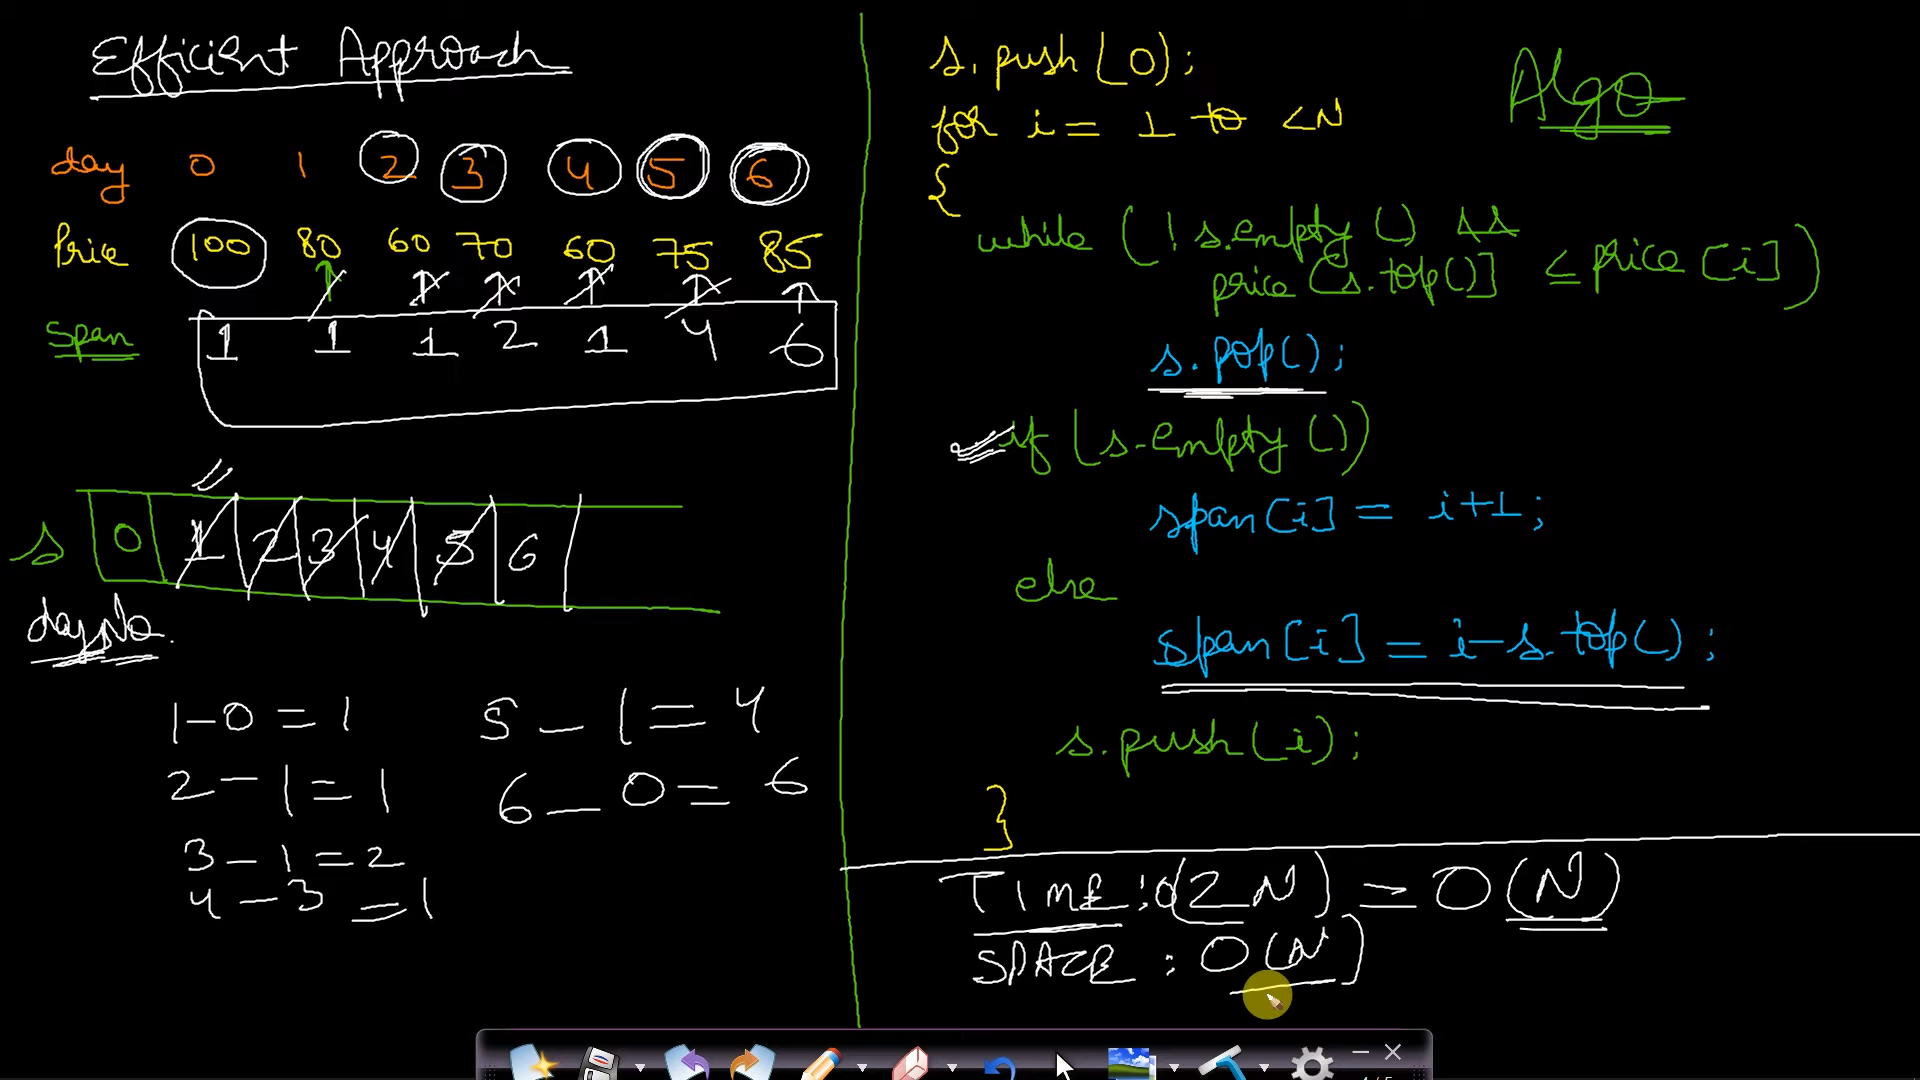 Efficient Approach
day 0 1 2 3 4 5 6
Price 100 80 60 70 60 75 85
Span 1 1 1 2 1 4 6
s 0 1 2 3 4 5 6
day No.
1 - 0 = 1
2 - 1 = 1
3 - 1 = 2
4 - 3 = 1
5 - 1 = 4
6 - 0 = 6
Algo
s.push(0);
for i = 1 to <N
{
while (! s.empty () &&
price [s.top()] ≤ price [i])
s.pop();
if (s.empty ())
span[i] = i+1;
else
span[i] = i-s.top();
s.push(i);
}
TIME : O(2N) = O(N)
SPACE : O(N)